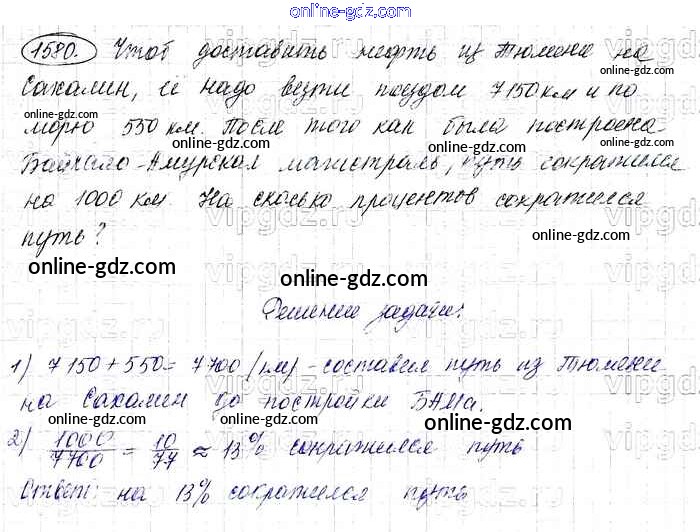 online-gdz.com
1580. Чтоб доставить нефть из Тюмени на
Сахалин, её надо везти поездом 7150 км и по
морю 550 км. После того как была построена
Байкало-Амурская магистраль, путь сократился
на 1000 км. На сколько процентов сократился
путь?
Решение задачи:
1) 7150+550= 7700 (км) - составил путь из Тюмени
на Сахалин до постройки БАМа.
2) 1000/7700 = 10/77 ≈ 13% сократился путь
Ответ: на 13% сократился путь
online-gdz.com
online-gdz.com
online-gdz.com
online-gdz.com
online-gdz.com
online-gdz.com
online-gdz.com
online-gdz.com
online-gdz.com
online-gdz.com
online-gdz.com
online-gdz.com
online-gdz.com
vipgdz.ru